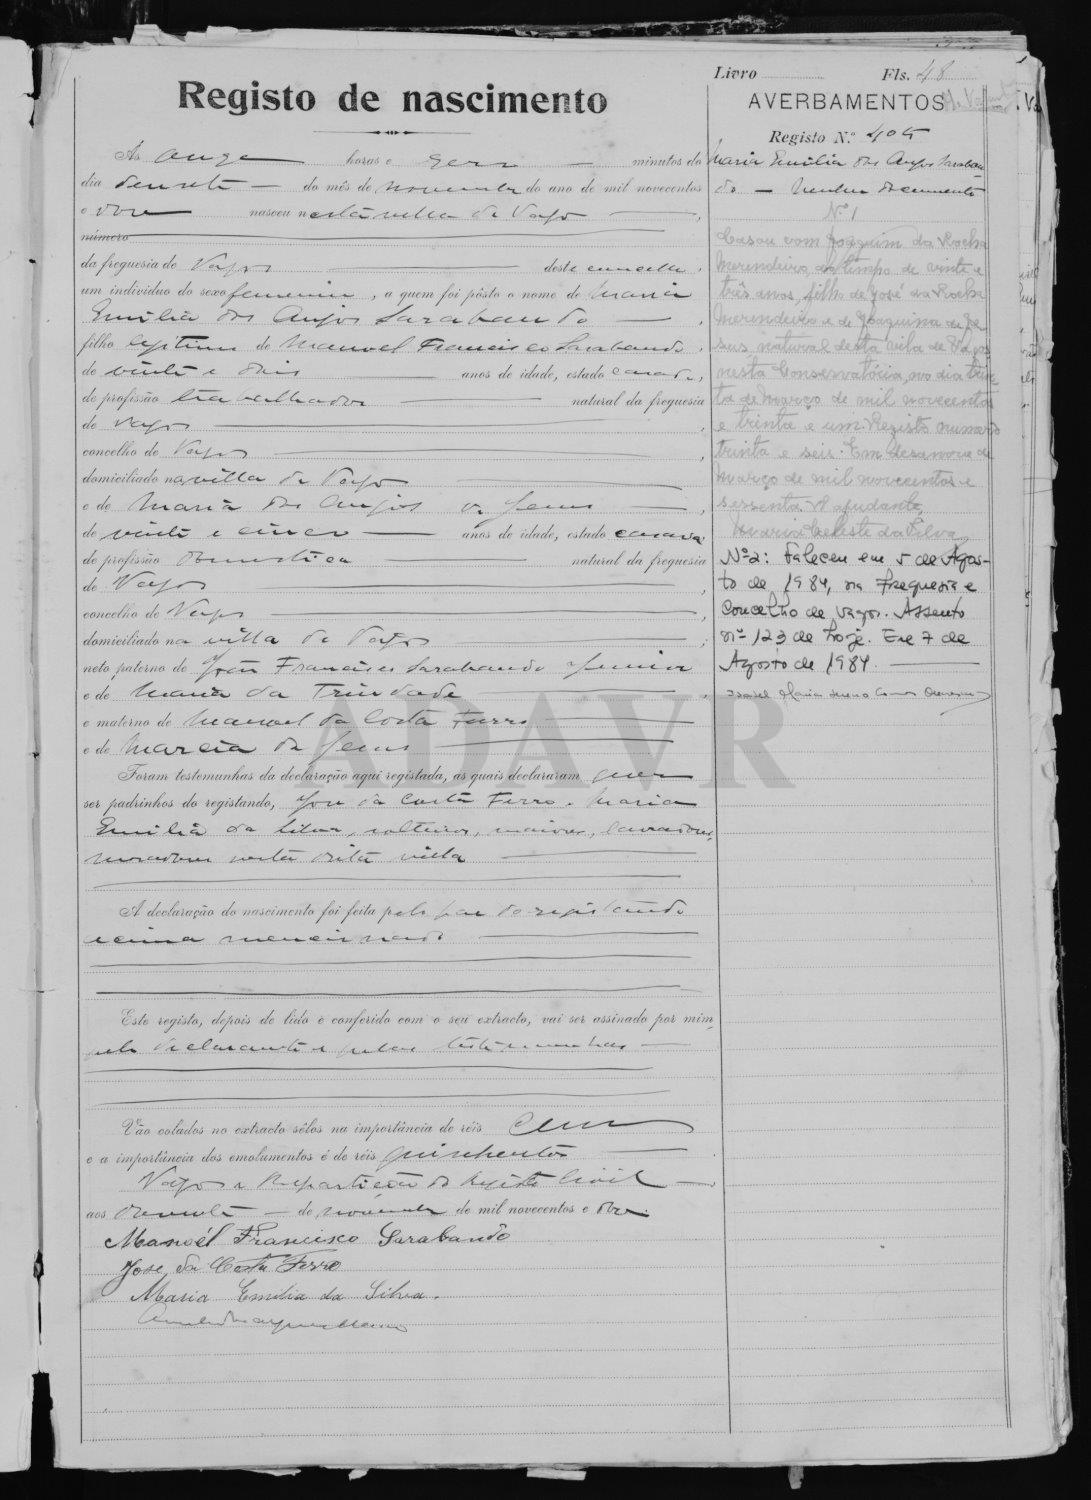 Livro Fls. 48
Registo de nascimento
AVERBAMENTOS
Registo N.º 405
Ás onze horas e zero minutos do
dia dezasete do mês de novembro do ano de mil novecentos
e doze nasceu nesta villa de Vagos,
número
da freguesia de Vagos deste concelho,
um indivíduo do sexo femenino, a quem foi pôsto o nome de Maria
Emilia dos Anjos Sarabando,
filho legitimo de Manuel Francisco Sarabando,
de vinte e dois anos de idade, estado casado,
de profissão trabalhador natural da freguesia
de Vagos,
concelho de Vagos,
domiciliado na villa de Vagos
e de Maria dos Anjos de Jesus,
de vinte e cinco anos de idade, estado casada
de profissão domestica natural da freguesia
de Vagos,
concelho de Vagos,
domiciliado na villa de Vagos;
neto paterno de João Francisco Sarabando Junior
e de Maria da Trindade,
e materno de Manuel da Costa Ferro
e de Maria de Jesus
Foram testemunhas da declaração aqui registada, as quais declararam querer
ser padrinhos do registando, José da Costa Ferro e Maria
Emilia da Silva, solteiros, maiores, lavradores,
moradores nesta dita villa
A declaração do nascimento foi feita pelo pae do registando
acima mencionado
Este registo, depois de lido e conferido com o seu extracto, vai ser assinado por mim,
pelo declarante e pelas testemunhas
Vão colados no extracto sêlos na importância de réis cem
e a importância dos emolumentos é de réis quinhentos
Vagos e Repartição do Registo Civil
aos de novembro de mil novecentos e doze.
Manoél Francisco Sarabando
Jose da Costa Ferro
Maria Emilia da Silva.
Maria Emilia dos Anjos Saraban-
do - Nenhum documento
Nº 1
Casou com Joaquim da Rocha
Merendeiro, do tempo de vinte e
três anos, filho de José da Rocha
Merendeiro e de Joaquina de Je-
sus natural desta vila de Vagos
nesta Conservatória, no dia trin-
ta de Março de mil novecentos
e trinta e um. Registo numero
trinta e seis. Em dezanove de
Março de mil novecentos e
sessenta. A ajudante,
Maria Celeste da Silva
Nº 2: Faleceu em 5 de Agos-
to de 1984, na Freguesia e
Concelho de Vagos. Assento
nº 123 de hoje. Em 7 de
Agosto de 1984.
Isabel Maria
ADAVR